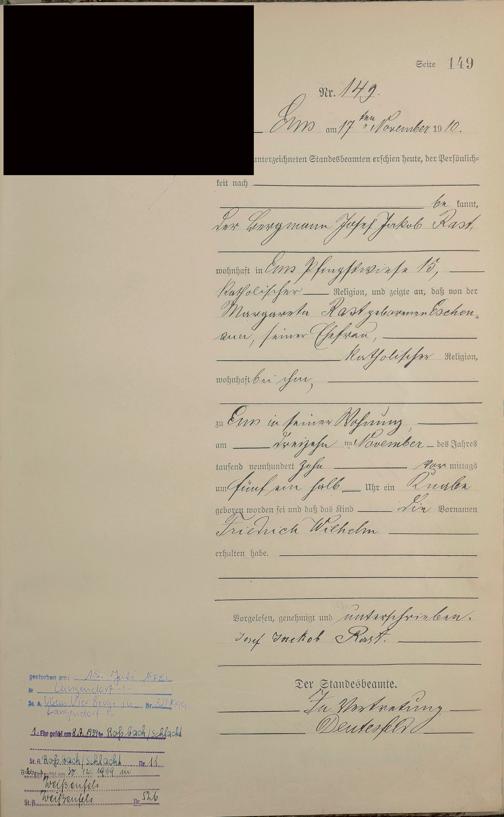 Seite 149
Nr. 149.
Ems am 17ten November 1910.
unterzeichneten Standesbeamten erschien heute, der Persönlich-
keit nach
be kannt,
der Bergmann Josef Jakob Rast,
wohnhaft in Ems Pfingstwiese 13,
katholischer Religion, und zeigte an, daß von der
Margareta Rast geborenen Eschen-
, seiner Ehefrau,
katholischer Religion,
wohnhaft bei ihm,
zu Ems in seiner Wohnung,
am dreizehnten November des Jahres
tausend neunhundert zehn vor mittags
um fünf ein halb Uhr ein Knabe
geboren worden sei und daß das Kind die Vornamen
Friedrich Wilhelm
erhalten habe.
Vorgelesen, genehmigt und unterschrieben.
Josef Jackob Rast.
Der Standesbeamte.
In Vertretung
gestorben am:
Nr. Langendorf
St. A.
Langendorf
1. Ehe gehl. am 8.7.1934 in Roßbach
St. A. Roßbach Nr. 11
12. 1949 in
Weißenfels
St. A. Weißenfels Nr. 526